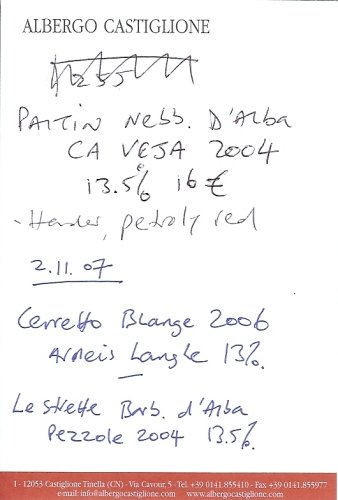 ALBERGO CASTIGLIONE
PAITIN Nebb. D'Alba
CA VEJA 2004
13.5% 16 €
- Harder, petroly red
2.11.07
Cerretto Blange 2006
Arneis Langhe 13%.
Le Strette Barb. d'Alba
Pezzole 2004 13.5%.
I - 12053 Castiglione Tinella (CN) - Via Cavour, 5 - Tel. +39 0141.855410 - Fax +39 0141.855977
e-mail: info@albergocastiglione.com www.albergocastiglione.com